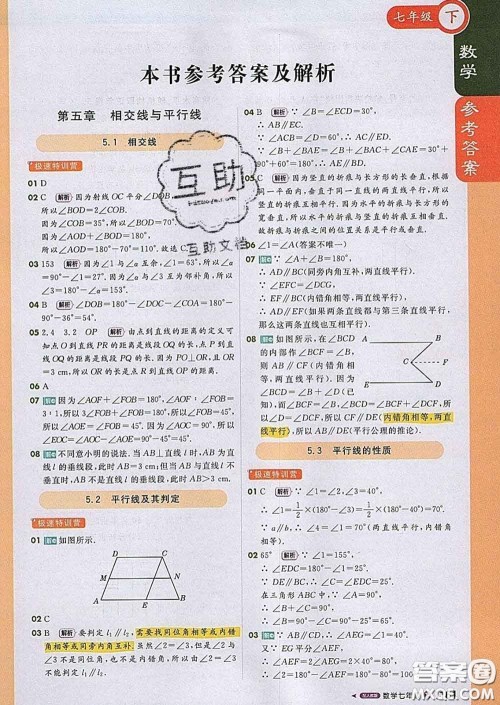 七年级 下
数学
参考答案
本书参考答案及解析
第五章 相交线与平行线
5.1 相交线
极速特训营
01 D
02 C 解析 因为射线 OC 平分∠DOB,
所以∠BOD=2∠COB.
因为∠COB=35°,所以∠BOD=70°.
因为∠AOD+∠BOD=180°,
所以∠AOD=180°-70°=110°.故选 C.
03 153 解析 因为∠α 与∠β 互余,∠α=63°,所以∠β=
90°-∠α=27°.因为∠β 与∠γ 互为邻补角,所以
∠γ=180°-∠β=153°.
04 B 解析 ∠DOB=180°-∠DOC-∠BOE=180°-
90°-36°=54°.
05 2.4 3.2 OP 解析 由点到直线的距离的定义可
知点 O 到直线 PR 的距离是线段 OQ 的长,点 P 到直线
OQ 的距离是线段 PQ 的长.因为 PO⊥OR,且 OR
=3 cm,所以点 R 到直线 PO 的距离是线段 OR 的长.
06 A
07 因为∠AOF+∠FOB=180°,∠AOF∶∠FOB=
3∶1,所以∠AOF=3∠FOB,所以4∠FOB=180°,所以
∠FOB=45°,所以∠AOE=∠FOB=45°.因为OC⊥AB,
所以∠AOC=90°,所以∠EOC=∠AOC-∠AOE=45°.
08 不同意小明的说法.当 AB⊥直线 l 时,AB 为
直线 l 的垂线段,此时 AB=3 cm;但当 AB 与直线 l 不
垂直时,AB 不是直线 l 的垂线段,此时 AB>3 cm.
5.2 平行线及其判定
极速特训营
01 如图所示.
D C
M N
A B
02 C
03 B 解析 要判定 l₁∥l₂,需要找同位角相等或内错
角相等或同旁内角互补.虽然∠2=∠3,但是∠2 与
∠3 不是同位角,也不是内错角,因此不能判定 l₁∥l₂.
04 B 解析 ∵∠B=∠ECD=30°,
∴AB∥EC.
∵∠ACB=∠CAD=90°,
∴AD∥BC.
05 C 解析 因为竖直的折痕与长方形的长垂直,根
据同一平面内,垂直于同一条直线的两条直线平行,所以
竖直的折痕互相平行.因为水平的折痕与长方形的宽
垂直,所以水平的折痕互相平行.因为长方形的每个角
都是直角,所以水平的折痕与竖直的折痕互相垂直.
06 ∠1=∠A(答案不唯一)
07 ∵∠A+∠B=180°,
∴AD∥BC(同旁内角互补,两直线平行).
∵∠EFC=∠DCG,
∴EF∥BC(内错角相等,两直线平行).
∴AD∥EF(如果两条直线都与第三条直线平行,
那么这两条直线也互相平行).
08 如图,在∠BCD
的内部作∠BCF=∠B,
则 AB∥CF(内错角相
等,两直线平行).
∵∠B=25°,∠BCD=45°,
∴∠DCF=∠BCD-∠BCF=20°,而∠D=20°,所
以∠D=∠DCF,所以 CF∥DE(内错角相等,两直
线平行),∴AB∥DE(平行公理的推论).
A B
C F
E D
5.3 平行线的性质
极速特训营
01 C 解析 ∵∠1=∠2,∠3=40°,
∴∠1=½×(180°-∠3)=½×(180°-40°)=70°.
∵a∥b,∴∠4=∠1=70°(两直线平行,内错角
相等).
02 65° 解析 ∵∠1=155°,
∴∠EDC=180°-∠1=25°.
∵DE∥BC,∴∠C=∠EDC=25°.
在三角形 ABC 中,∵∠A=90°,
∴∠B+∠C=90°,
∴∠B=90°-∠C=65°.
03 ∵AB∥CD,∴∠AEG=∠1=40°.
又∵EG 平分∠AEF,
∴∠AEF=2∠AEG=2×40°=80°,
∴∠2=180°-∠AEF=180°-80°=100°.
互助
互助文档
RJ人教版 数学七年
答案圈
MXQE.COM